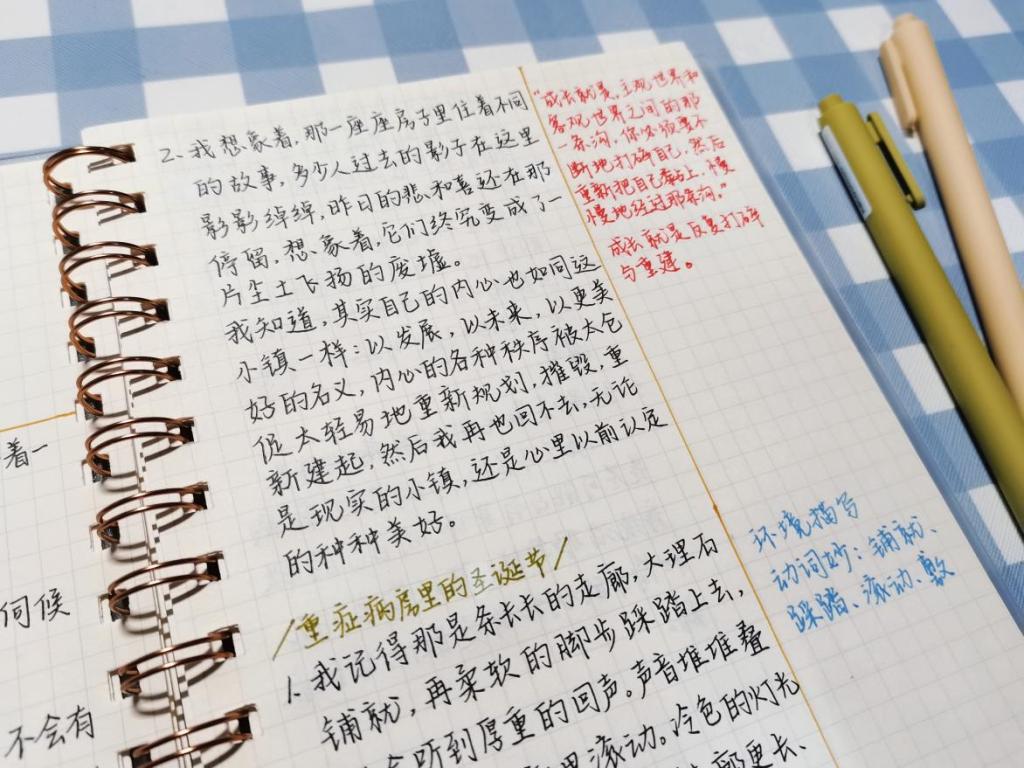 着一
伺候
不会有
2. 我想象着，那一座座房子里住着不同
的故事，多少人过去的影子在这里
影影绰绰，昨日的悲和喜还在那
停留，想象着，它们终究变成了一
片尘土飞扬的废墟。
我知道，其实自己的内心也如同这
小镇一样：以发展，以未来，以更美
好的名义，内心的各种秩序被太仓
促太轻易地重新规划，摧毁，重
新建起，然后我再也回不去，无论
是现实的小镇，还是心里以前认定
的种种美好。
/重症病房里的圣诞节/
1. 我记得那是条长长的走廊，大理石
铺就，再柔软的脚步踩踏上去，
会听到厚重的回声。声音堆堆叠
里滚动。冷色的灯光
廊更长、
"成长就是，主观世界和
客观世界之间的那
一条沟，你必须要不
断地打碎自己，然后
重新把自己黏上，慢
慢地经过那条沟。"
成长就是反复打碎
与重建。
环境描写
动词妙：铺就、
踩踏、滚动、敷